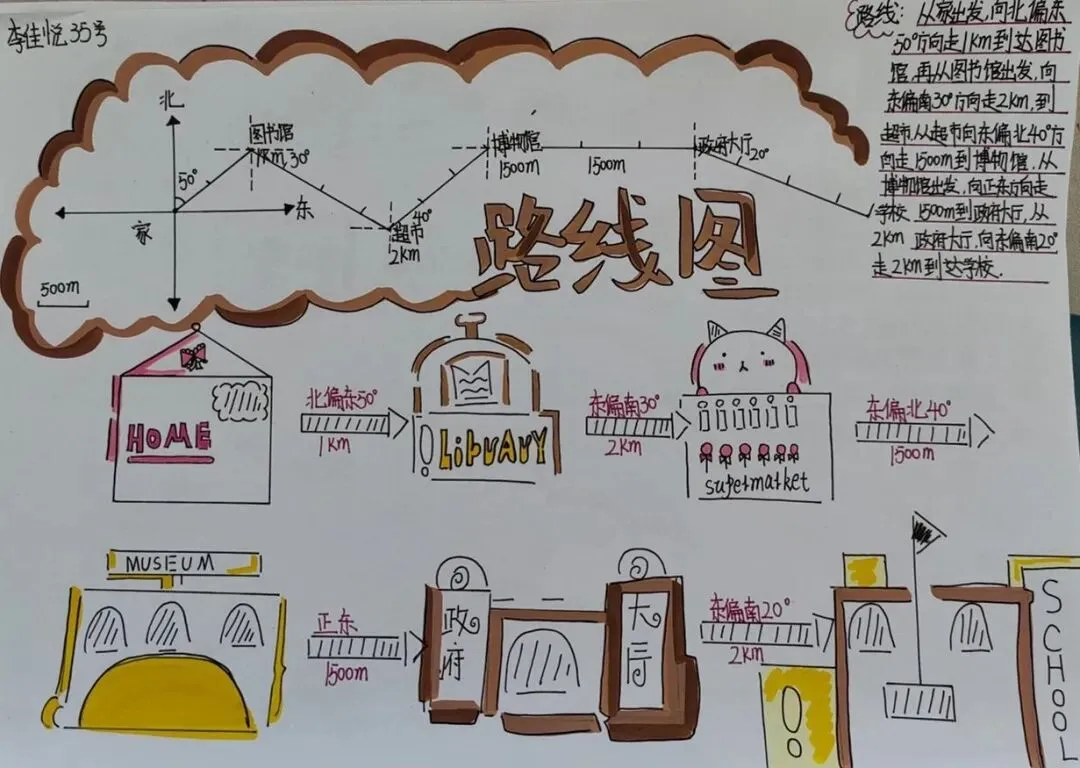 李佳悦35号
路线：从家出发,向北偏东
50°方向走1km到达图书
馆,再从图书馆出发,向
东偏南30°方向走2km,到
超市.从超市向东偏北40°方
向走1500m到博物馆.从
博物馆出发,向正东方向走
1500m到政府大厅,从
政府大厅,向东偏南20°
走2km到达学校.
北
图书馆
1km
30°
50°
东
家
500m
40°
超市
2km
博物馆
1500m
1500m
政府大厅
20°
学校
2km
路线图
HOME
北偏东50°
1km
LibrARY
东偏南30°
2km
supermarket
东偏北40°
1500m
MUSEUM
正东
1500m
政府
大厅
东偏南20°
2km
SCHOOL